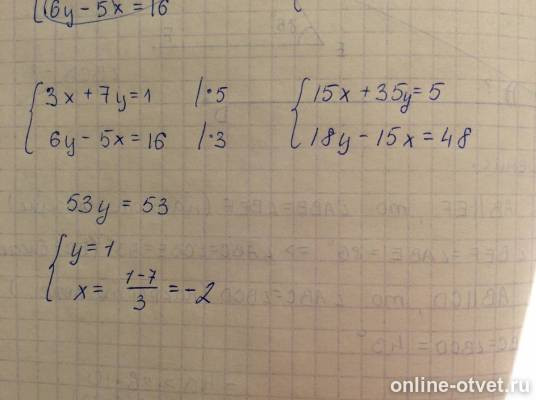 6y - 5x = 16
{ 3x + 7y = 1 | · 5
6y - 5x = 16 | · 3
{ 15x + 35y = 5
18y - 15x = 48
53y = 53
{ y = 1
x = (1-7)/3 = -2
online-otvet.ru